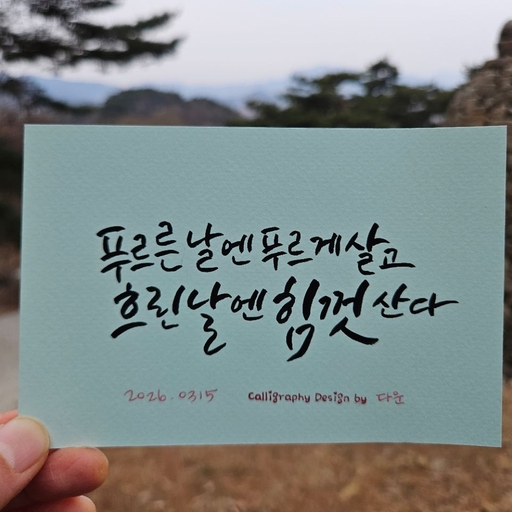 푸르른 날엔 푸르게 살고
흐린 날엔 힘껏 산다
2026.0315 Calligraphy Design by 다운